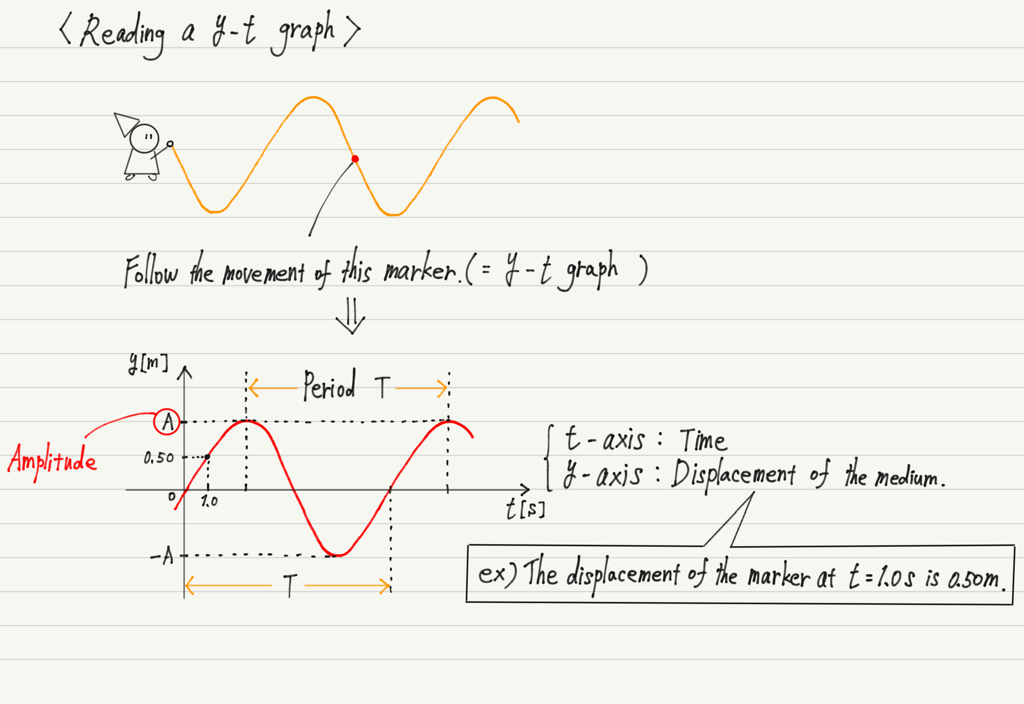 〈Reading a y-t graph〉
Follow the movement of this marker.(= y-t graph )
y[m]
Period T
A
Amplitude
0.50
0
1.0
t[s]
-A
T
t-axis : Time
y-axis : Displacement of the medium.
ex) The displacement of the marker at t=1.0s is 0.50m.